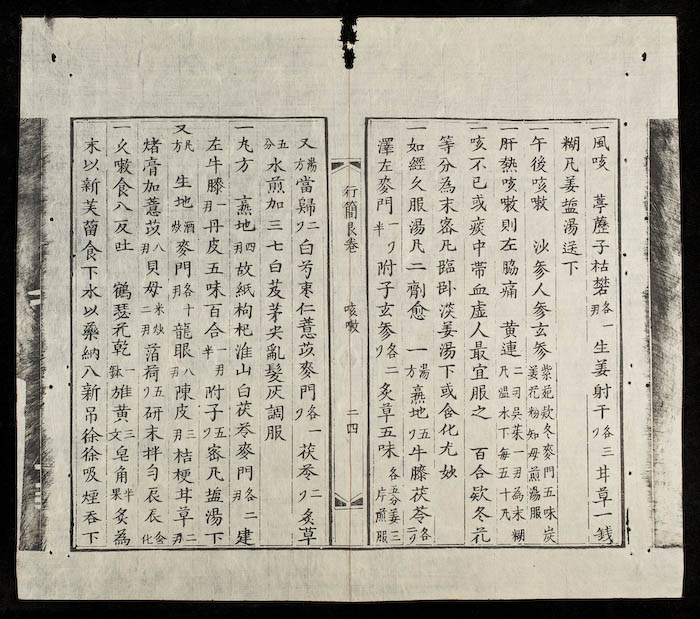 一風咳 葶藶子枯礬各一刄生姜射干各三刄甘草一錢
糊凡姜盐湯送下
一午後咳嗽 沙參人參玄參紫菀欵冬麥門五味炭姜花粉知母煎湯服
肝熱咳嗽則左脇痛 黄連二刄吳茱一刄為末糊凡溫水下每五十凡
咳不已或痰中帶血虛人最宜服之 百合欵冬花
等分為末密凡臨卧淡姜湯下或含化尤妙
一如經久服湯凡二劑愈 一湯方熹地五牛膝茯苓各
澤左麥門一半附子玄參各二炙草五味各五分姜三片煎服
行簡良卷 咳嗽 二四
又湯方當歸二白芍枣仁薏苡麥門各一茯苓二炙草
五分水煎加三七白芨茅尖亂髮灰調服
一凡方 熹地四刄故紙枸杞淮山白茯苓麥門各二刄建
左牛膝一刄丹皮五味百合一刄半附子五密凡盐湯下
又凡方 生地酒炒麥門各十刄龍眼八刄陳皮三刄桔梗甘草二刄
煮膏加薏苡八刄貝母米炒二刄薄荷五研末拌勻辰辰含化
一久嗽食入反吐 鶴瑟元乾一雄黄三文皂角半果炙為
末以新芙蒥食下水以藥納入新吊徐徐吸煙吞下